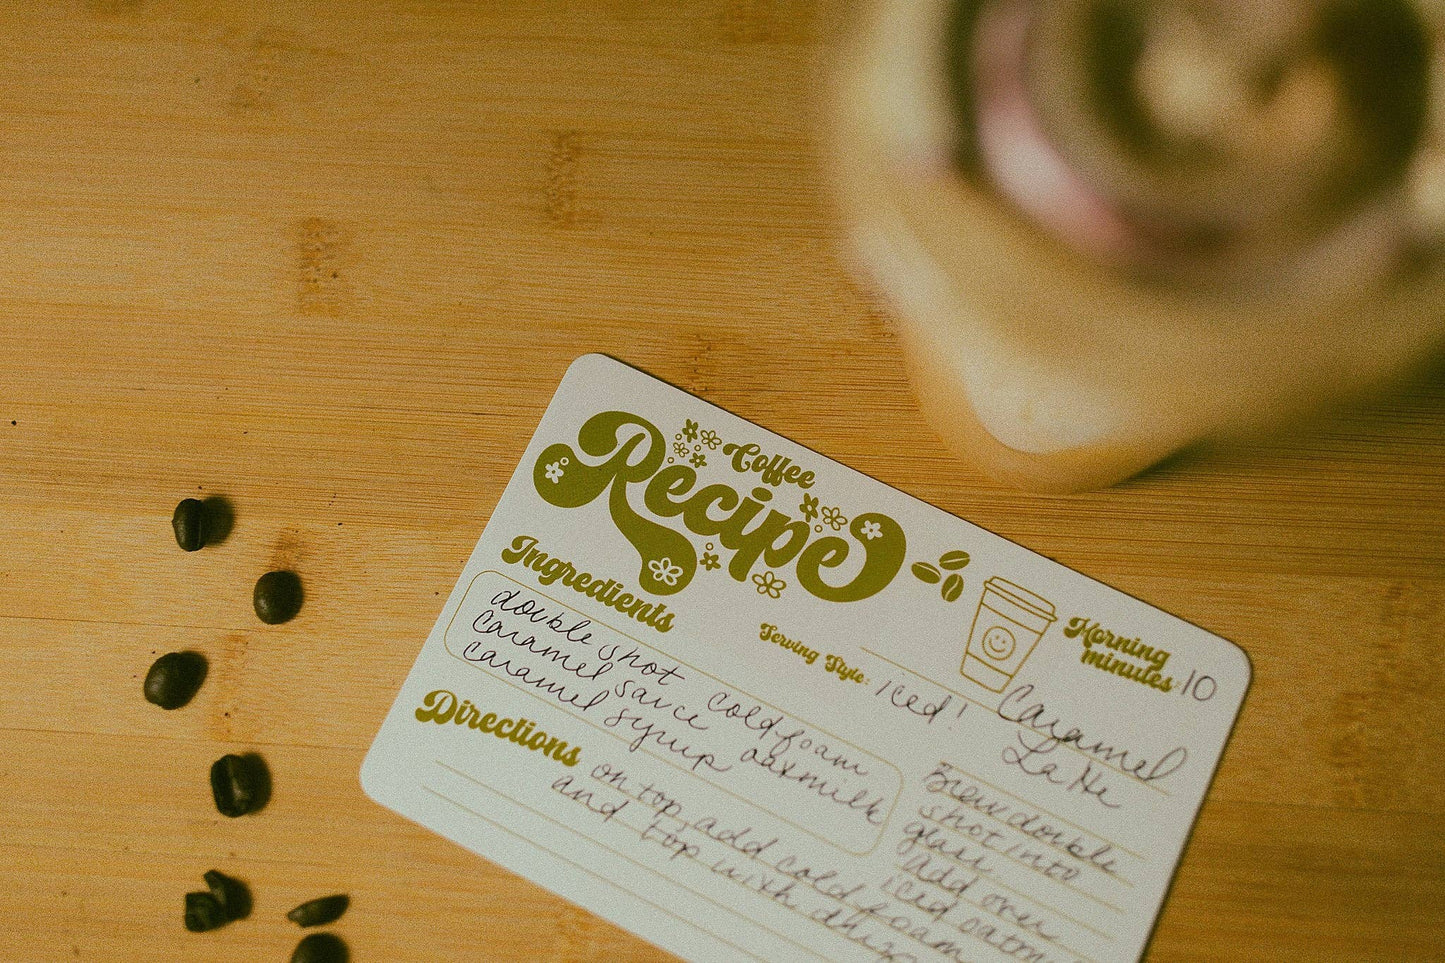 Coffee
Recipe
Morning
minutes: 10
Serving Style: iced!
Caramel
Latte
Ingredients
double shot coldfoam
caramel sauce oatmilk
caramel syrup
Directions
Brew double
shot into
glass.
Add over
iced
on top, add cold foam
and top with